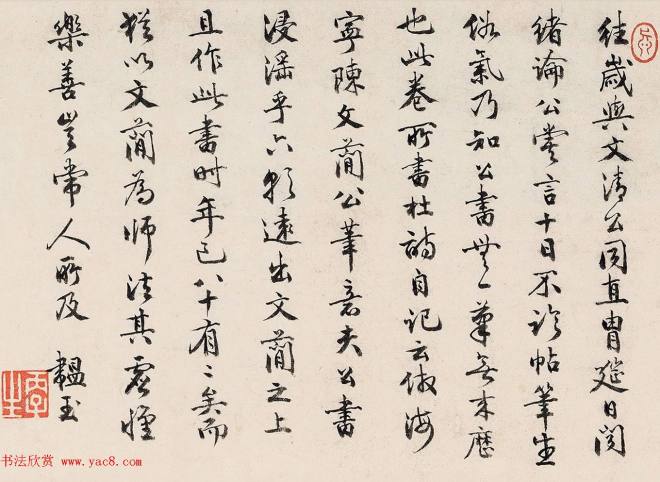 往歲與文清公同直胄筵日聞
緒論公嘗言十日不臨帖筆生
俗氣乃知公書無一筆無來歷
也此卷所書杜詩自記云倣海
寧陳文簡公筆意夫公書
浸淫乎六朝遠出文簡之上
且作此書時年已八十有二矣而
猶以文簡為師法其虛懷
樂善豈常人所及 韞玉
丙子之生
书法欣赏 www.yac8.com